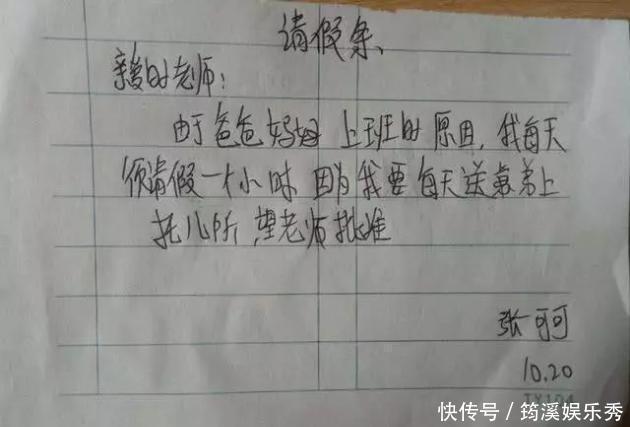 请假条
亲爱的老师：
由于爸爸妈妈上班的原因，我每天
须请假一个小时 因为我要每天送弟弟上
托儿所，望老师批准
张可可
10.20
TX104
快传号／筠溪娱乐秀